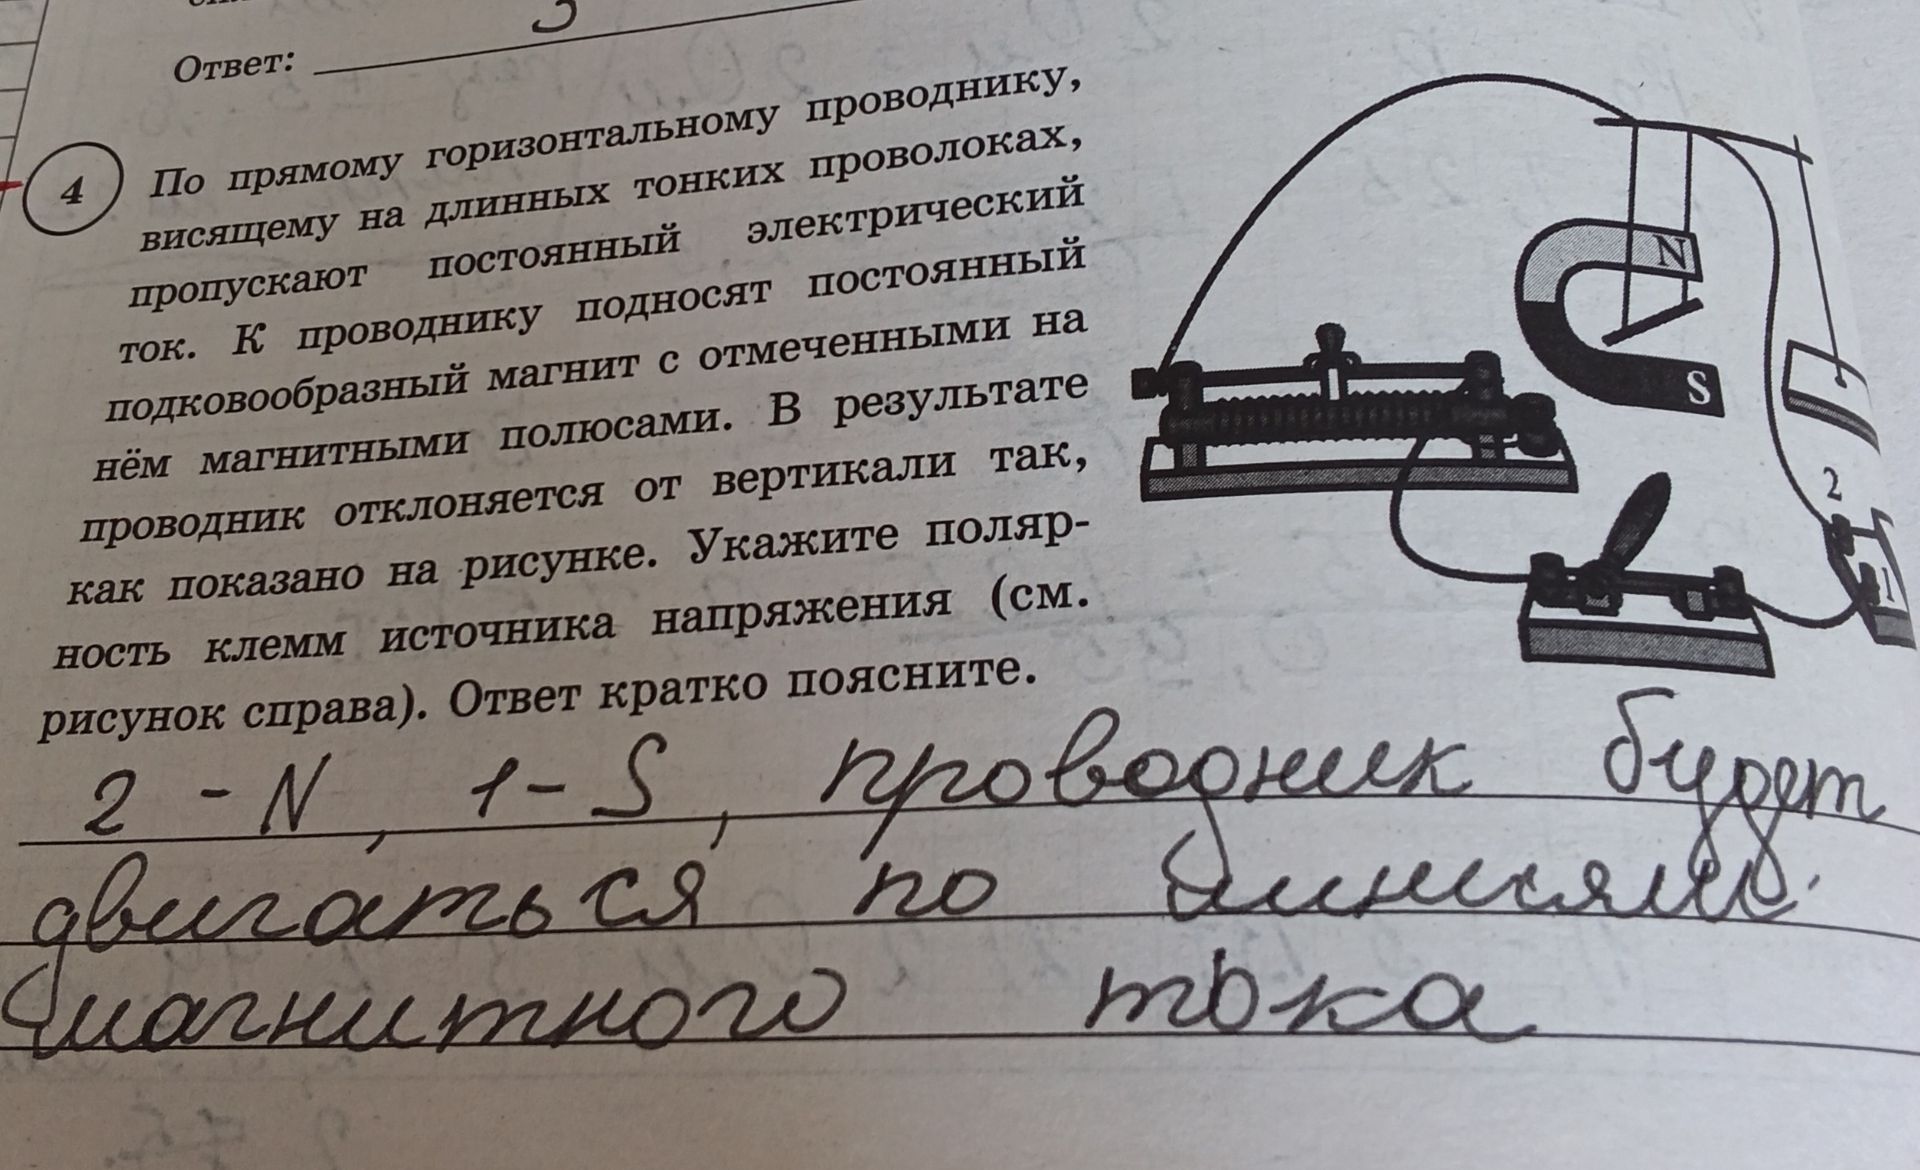 Ответ:
4
По прямому горизонтальному проводнику,
висящему на длинных тонких проволоках,
пропускают постоянный электрический
ток. К проводнику подносят постоянный
подковообразный магнит с отмеченными на
нём магнитными полюсами. В результате
проводник отклоняется от вертикали так,
как показано на рисунке. Укажите поляр-
ность клемм источника напряжения (см.
рисунок справа). Ответ кратко поясните.
N
S
2
1
2 - N, 1 - S, проводник будет
двигаться по линиям
магнитного тока